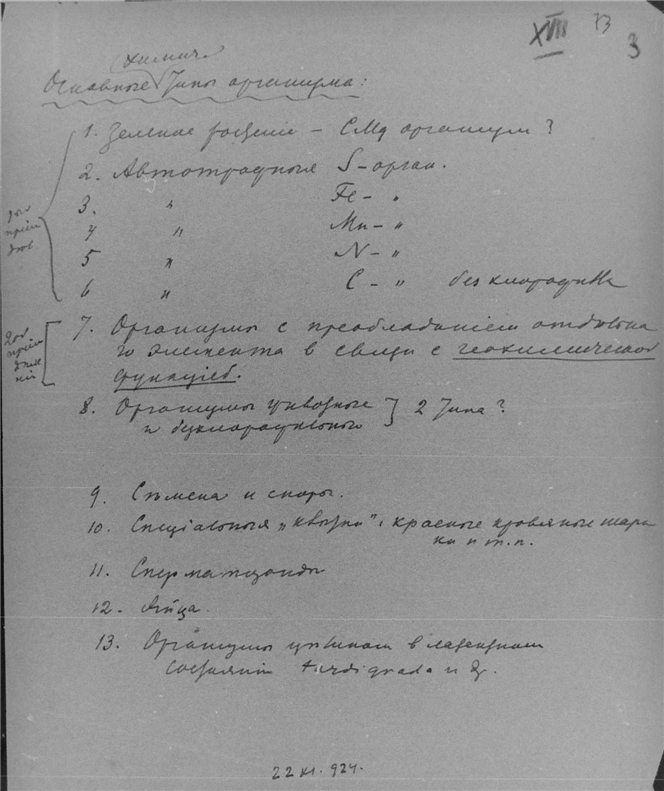 XVIII 73
3
химич.
Основные типы организма:
1. Зеленое растение – CMg организм?
2. Автотрофные S – орган.
3. " Fe – "
4 " Mn – "
5 " N – "
6 " C – " без хлорофилла
7. Организмы с преобладанием отдельна
го элемента в связи с геохимической
функцией.
8. Организмы животные
и безхлорофильные } 2 типа?
9. Семена и споры.
10. Специальныя „ " : красные кровяные шари
ки и т.п.
11. Сперматозоиды
12. Яйца.
13. Организмы в латентном
состоянии tardigrada и др.
22 XI. 924.